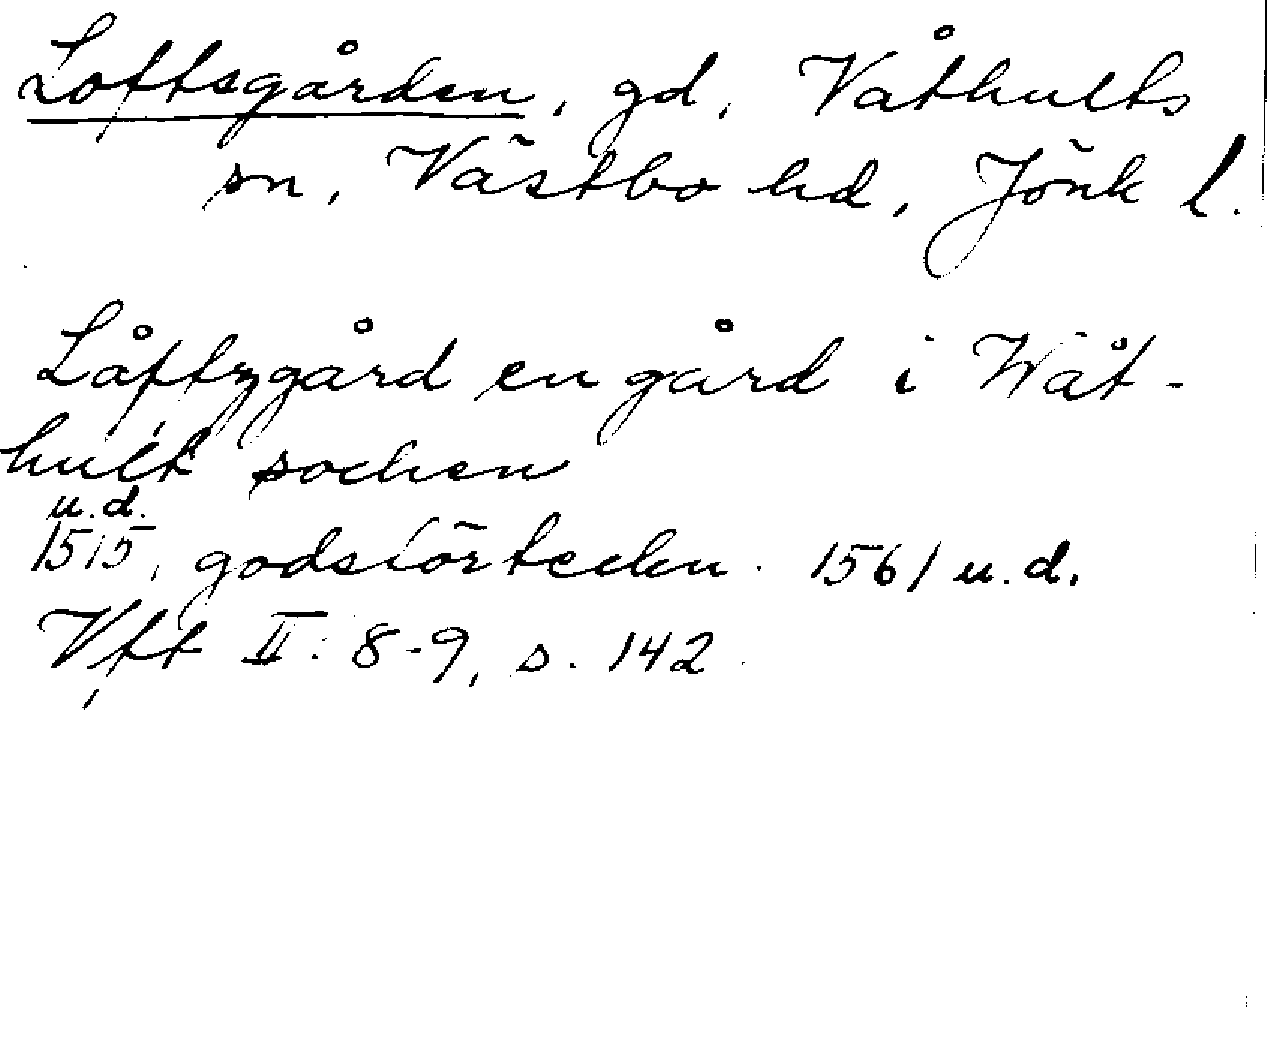 Loftsgården, gd, Våthults
sn, Västbo hd, Jönk l.
Låftzgård en gård i Wåt-
hult sochen
u.d.
1515, godsförteckn. 1561 u.d.
Vft II: 8-9, s. 142.